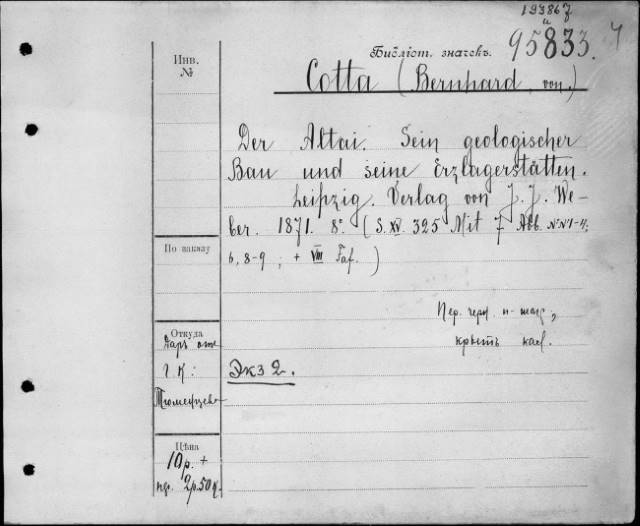 193867
и
Инв.
№
Библіот. значекъ.
95833.
Cotta (Bernhard von.)
Der Altai. Sein geologischer
Bau und seine Erzlagerstätten.
Leipzig. Verlag von J. J. We-
ber. 1871. 8°. (S. XV. 325 Mit 7 Abb. №№1-4;
6, 8-9; + VIII Taf.)
По заказу
Пер. черн.
Откуда
Даръ отъ
Г. К:
Тюменцева
Экз 2.
Цѣна
10р. +
пер. 2р.50к.